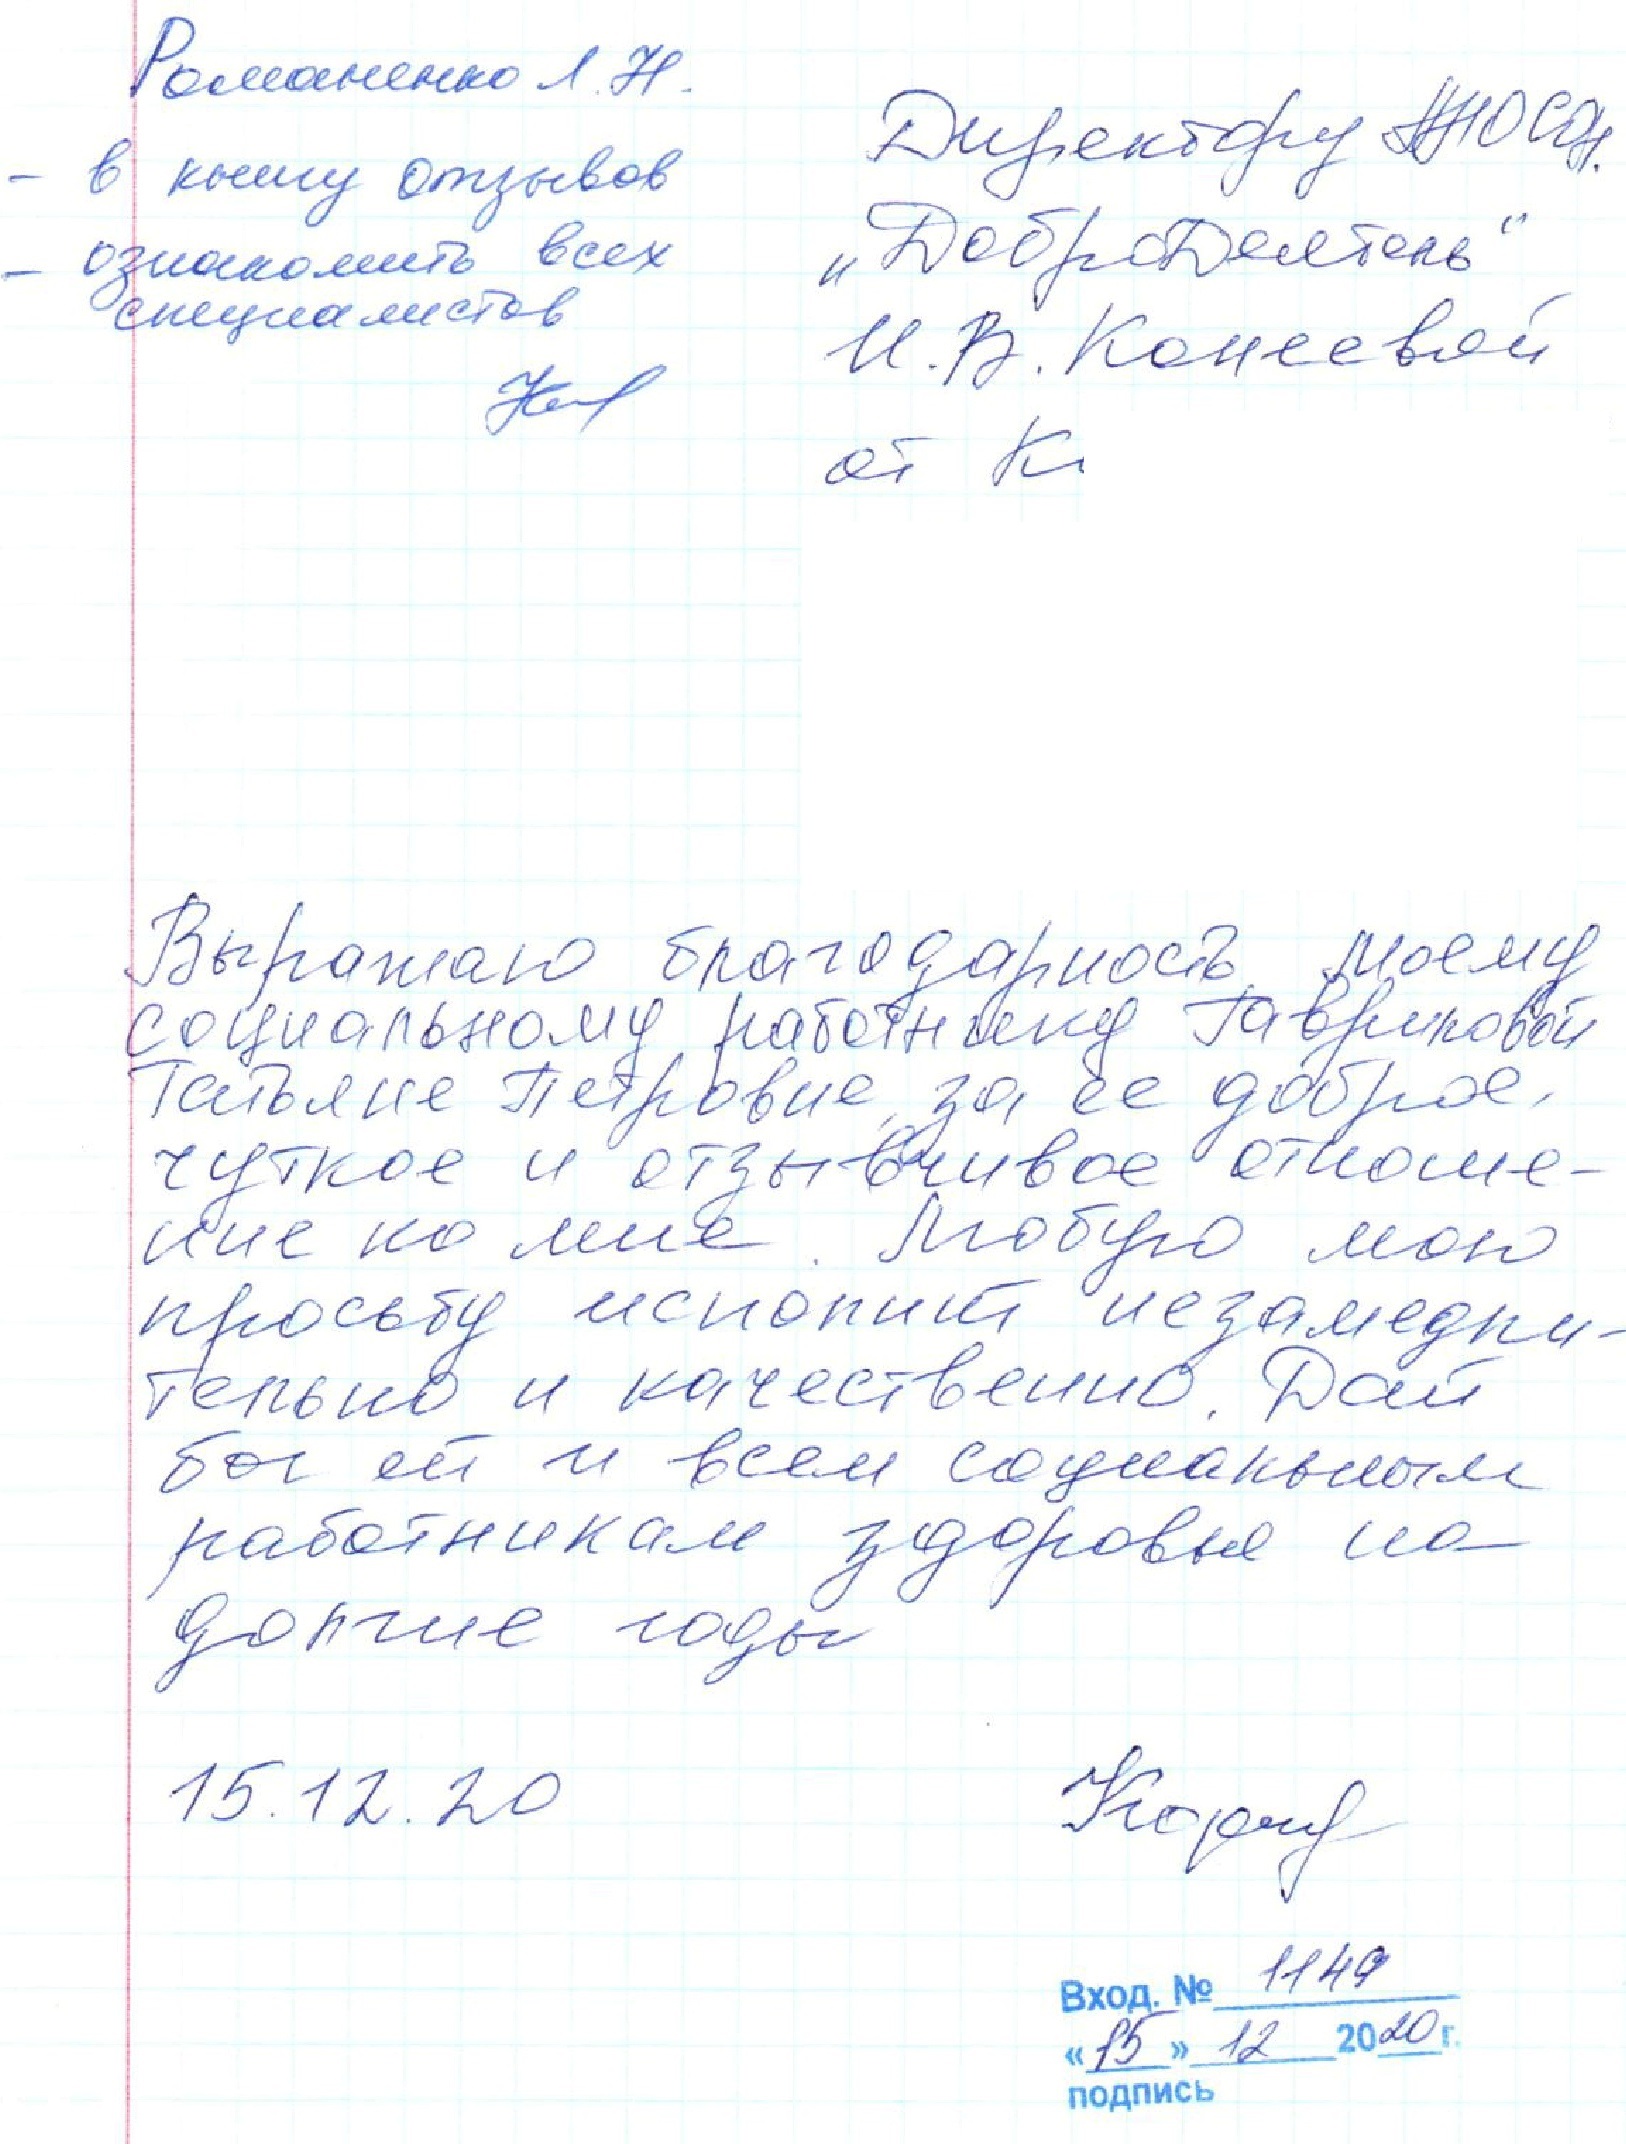 Романенко Л.Н.
- в книгу отзывов
- ознакомить всех
специалистов
Директору АНО СОН
„ДоброДеятель“
И.В. Конеевой
от К
Выражаю благодарность моему
социальному работнику Гавриловой
Татьяне Петровне, за ее доброе,
чуткое и отзывчивое отноше-
ние ко мне. Любую мою
просьбу исполнит незамедли-
тельно и качественно. Дай
бог ей и всем социальным
работникам здоровья на
долгие годы
15.12.20
Вход. № 1149
«15» 12 2020 г.
подпись